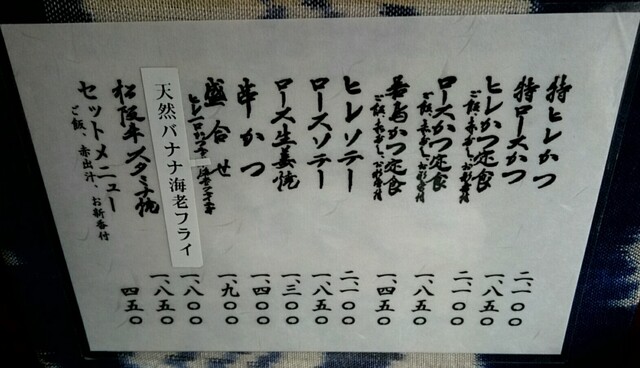 特ヒレかつ 二、一〇〇
特ロースかつ 一、八五〇
ヒレかつ定食 二、一〇〇
ご飯、赤出汁、お新香付
ロースかつ定食 一、八五〇
ご飯、赤出汁、お新香付
若鳥かつ定食 一、四五〇
ご飯、赤出汁、お新香付
ヒレソテー 二、一〇〇
ロースソテー 一、八五〇
ロース生姜焼 一、三〇〇
串かつ 一、四〇〇
盛合せ 一、九〇〇
天然バナナ海老フライ 一、八〇〇
松阪牛スタミナ焼 一、八五〇
セットメニュー 四五〇
ご飯、赤出汁、お新香付